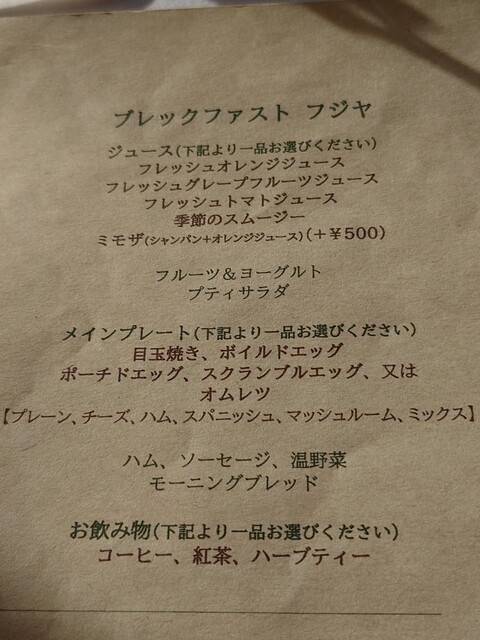 ブレックファスト フジヤ
ジュース(下記より一品お選びください)
フレッシュオレンジジュース
フレッシュグレープフルーツジュース
フレッシュトマトジュース
季節のスムージー
ミモザ(シャンパン+オレンジジュース)(+¥500)
フルーツ&ヨーグルト
プティサラダ
メインプレート(下記より一品お選びください)
目玉焼き、ボイルドエッグ
ポーチドエッグ、スクランブルエッグ、又は
オムレツ
【プレーン、チーズ、ハム、スパニッシュ、マッシュルーム、ミックス】
ハム、ソーセージ、温野菜
モーニングブレッド
お飲み物(下記より一品お選びください)
コーヒー、紅茶、ハーブティー